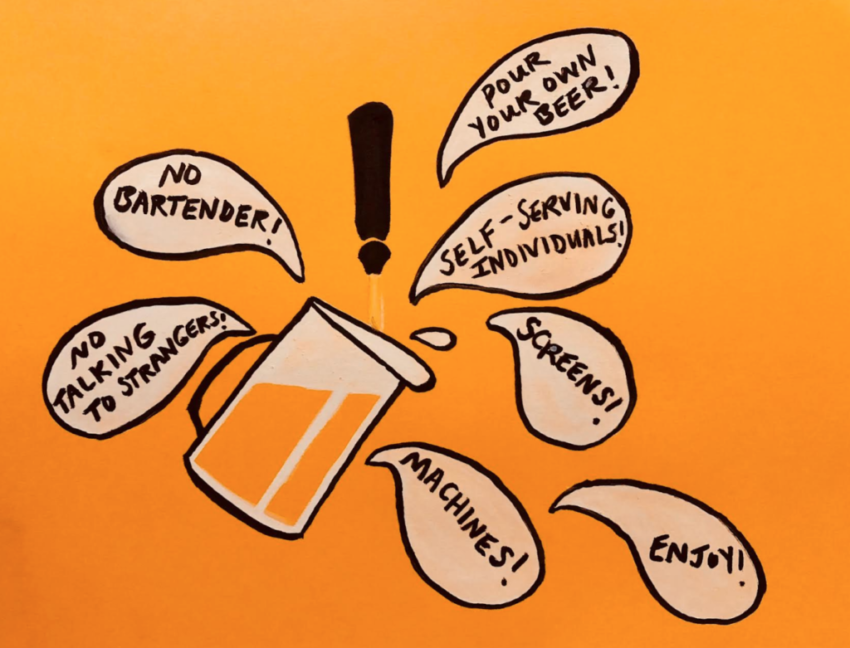 POUR
YOUR OWN
BEER!
NO
BARTENDER!
SELF-SERVING
INDIVIDUALS!
NO
TALKING
TO STRANGERS!
SCREENS!
MACHINES!
ENJOY!